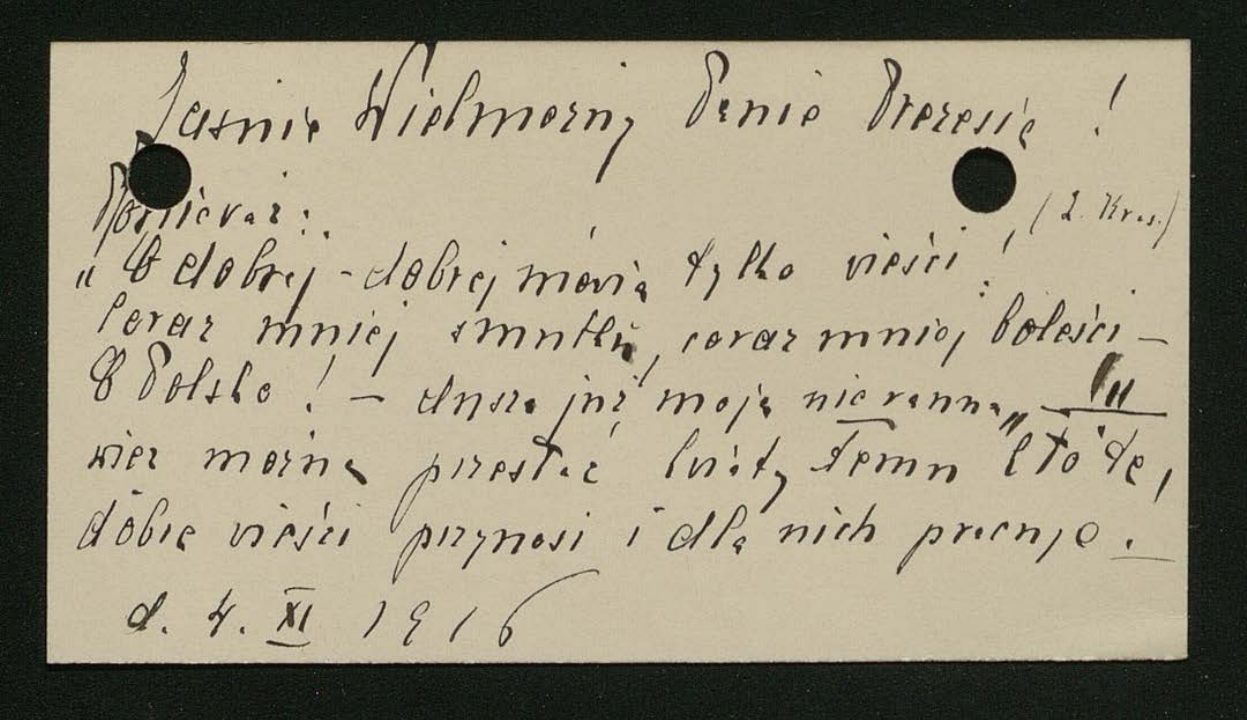 Jaśnie Wielmożny Panie Prezesie !
Ponieważ :
(Z. Kras.)
„O dobrej - dobrej mówią tylko wieści !
Coraz mniej smutku, coraz mniej boleści —
O Polsko ! — dusza już moja nie ranna„ —
więc można przesłać kwiaty temu kto te,
dobre wieści przynosi i dla nich pracuje . —
d. 4. XI 1916